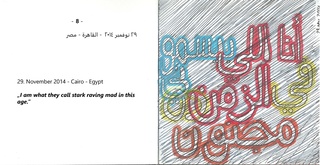 - 8 -
٢٩ نوفمبر ٢٠١٤ - القاهرة - مصر
29. November 2014 - Cairo - Egypt
„I am what they call stark raving mad in this
age."
أنا اللي بيسموني
في الزمن ده
مجنون